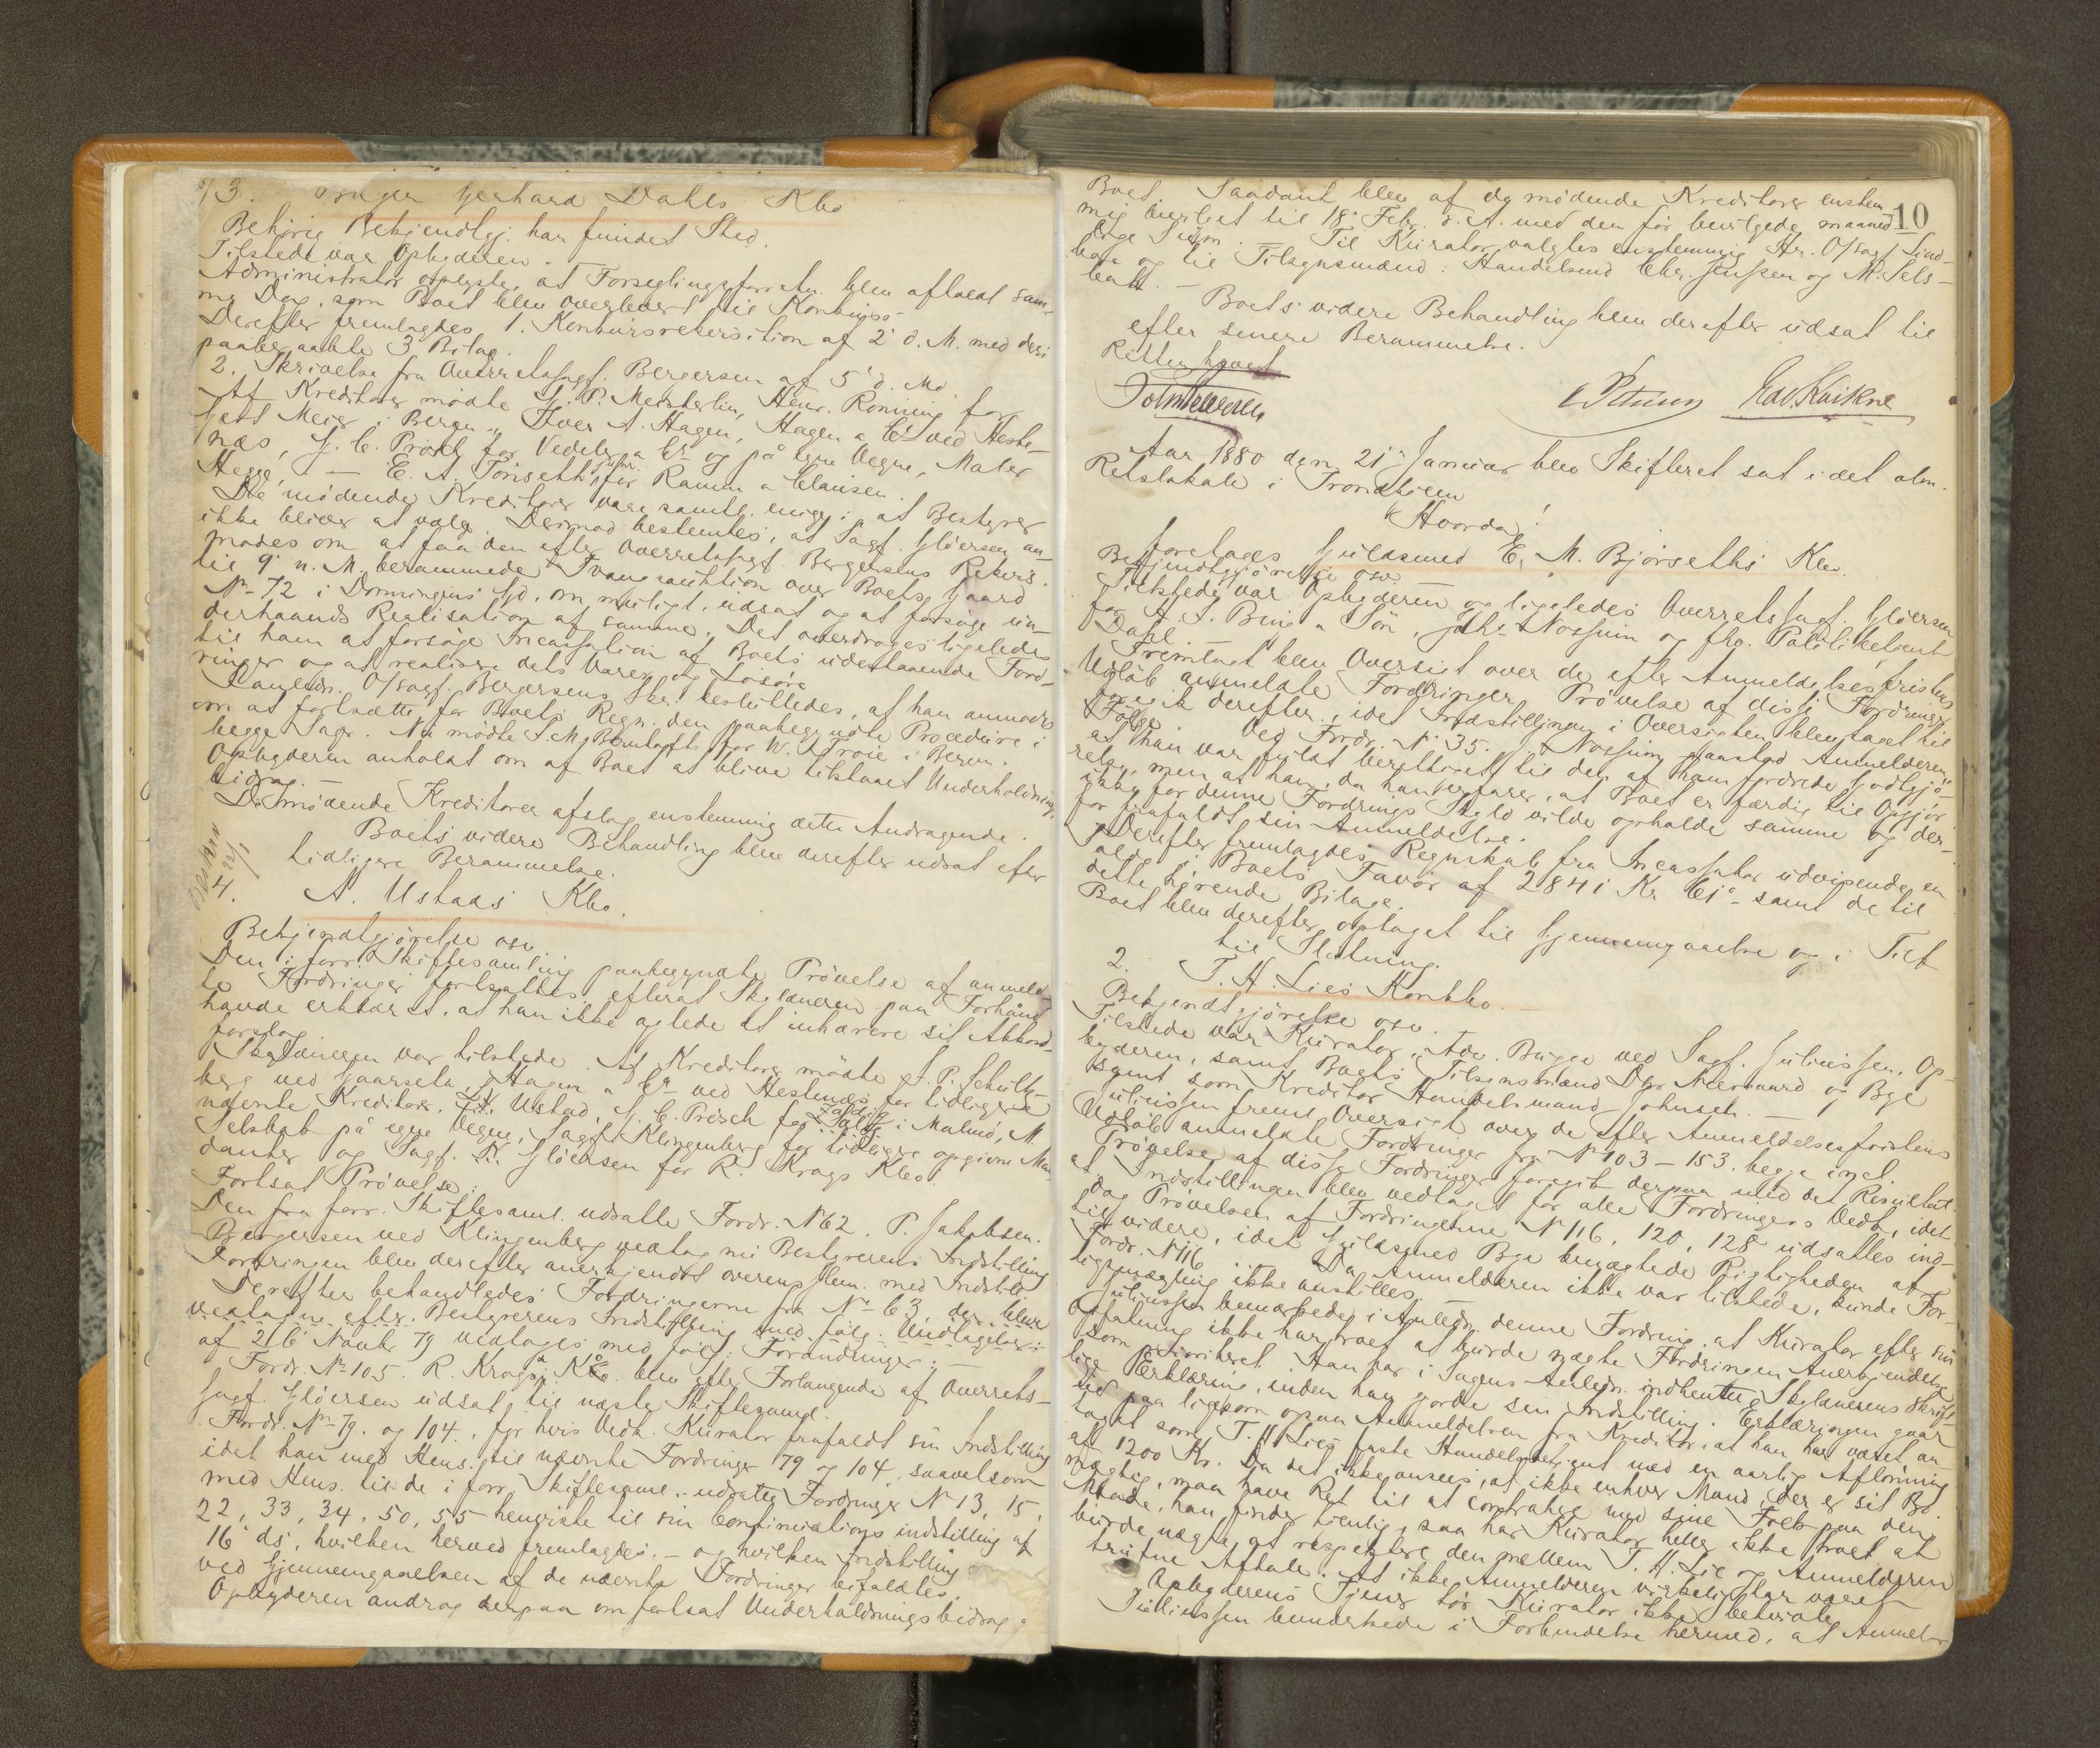 3. Gerhard Dahls Kbo
Behørig Bekjendtgj. har fundet Sted.
Tilstede var Opbyderen.
Administrator oplyste, at Forseglingsforretn. blev afholdt sam-
me Dag, som Boet blev overlevert til Konkurs.
Derefter fremlagdes 1. Konkursrekvisition af 2' d. M. med deri
paaberaabte 3 Bilag.
2. Skrivelse fra Overretssagf. Bergersen af 5' d. M.
Af Kreditorer mødte P. Meisterlin, Henr. Rønning for
Gert Meyer i Bergen, Iver A. Hagen, Hagen & Co ved Heste-
næs, J. C. Prösch for Vedeler & Co og på egne Vegne, Maler
Hegge, – E. A. Tønseth jun. for Ramm & Clausen.
De mødende Kreditorer vare samtl. enige i, at Bestyrer
ikke bliver at vælge. Derimod bestemtes, at Sagf. Gløersen an-
modes om at faa den efter Overretssagf. Bergersens Rekvis.
til 9' n. M. berammede Tvangsauktion over Boets Gaard
No 72 i Dronningens Gd. om muligt, udsat og at forsøge un-
derhaands Realisation af samme. Det overdrages ligeledes
til ham at forsøge Incassation af Boets udestaaende Ford-
ringer og at realisere dets Varer og Løsøre
O/sagf. Bergersens Skr. besluttedes, at han anmodes
om at fortsætte for Boets Regn. den paabegyndte Procedure i
begge Sager. Nu mødte S. M. Berntoft for W. Troie i Bergen.
Opbyderen anholdt om af Boet at blive tilstaaet Underholdnings-
bidrag. –
De mødende Kreditorer afslog enstemmig dette Andragende.
Boets videre Behandling blev derefter udsat efter
tidligere Berammelse.
4. A. Ustads Kbo.
Bekjendtgjørelse osv.
Den i forr. Skiftesamling paabegyndte Prøvelse af anmeld-
te Fordringer fortsattes, efterat Skyldneren paa Forhånd
havde erklæret, at han ikke agtede at inhærere sit Akkord-
forslag.
Skyldneren var tilstede. Af Kreditorer mødte J. P. Schult-
berg ved Gaarseth, Hagen & Co ved Hestenæs for tidligere
nævnte Kreditorer, Ustad, J. C. Prösch for i Malmö, M.
Selskab på egne Vegne, Sagf. Klingenberg for tidligere opgivne Man-
danter og Sagf. Gløersen for R. Krags Kbo.
Fortsat Prøvelse:
Den fra forr. Skiftesaml. udsatte Fordr. No 62. P. Jakobsen.
Bergersen ved Klingenberg vedtog nu Bestyrerens Indstilling.
Fordringen blev derefter anerkjendt overensstem. med Indstill.
Derefter behandledes Fordringerne fra No 63, der blev
vedtagne efter Bestyrerens Indstilling med følg. Undtagelser:
af 26' Novbr 79 vedtages med følg. Forandringer: –
Fordr. No 105. R. Krags Kbo. blev efter Forlangende af Overrets-
sagf. Gløersen udsat til næste Skiftesaml.
Fordr. No 79. og 104., for hvis Vedk. Kurator frafaldt sin Indstilling
idet han med Hens. til nævnte Fordringer 79 og 104, saavelsom
med Hens. til de i forr. Skiftesaml. udsatte Fordringer No 13, 15,
22, 33, 34, 50, 55 henviste til sin Continuationsindstilling af
16' ds, hvilken herved fremlagdes, – og hvilken Indstilling
ved Gjennemgaaelsen af de nævnte Fordringer bifaldtes.
Opbyderen androg derpaa om fortsat Underholdningsbidrag af
10
Boet. Saadant blev af de mødende Kreditorer enstem-
mig bevilget til 18' Febr. d. A. med den før bevilgede maaned-
lige Sum. – Til Kurator valgtes enstemmig Hr. O/sagf. Lind-
boe og til Tilsynsmænd: Handelsmd Chr. Jenssen og M. Sels-
bak. –
Boets videre Behandling blev derefter udsat til
efter senere Berammelse.
Retten hævet
Edv. Kvikne
Aar 1880 den 21' Januar blev Skifteret sat i det alm.
Retslokale i Trondhjem
Hvorda!
foretages Guldsmed E. M. Bjørseths Kbo.
Bekjendtgjørelse osv.
Tilstede var Opbyderen og ligeledes Overretssagf. Gløersen
for A. S. Bing & Søn, Johs. Nossum og fhv. Politibetjent
Dahl. –
Fremlagt blev Oversigt over de efter Anmeldelsesfristens
Udløb anmeldte Fordringer. Prøvelse af disse Fordringer
foregik derefter, idet Indstillingen i Oversigten blev taget til
Følge. Ved Fordr. No 35. J. Nossum paastod Anmelderen,
at han var fuldt berettiget til den af ham fordrede Godtgjø-
relse, men at han, da han erfarer, at Boet er færdig til Opgjør
ikke for denne Fordrings Skyld vilde opholde samme og der-
for frafaldt sin Anmeldelse.
Derefter fremlagdes Regnskab fra Incassator udvisende en
Saldo i Boets Favør af 2841 Kr 61 ø samt de til
dette hørende Bilage.
Boet blev derefter optaget til Gjennemgaaelse og i Tilf
til Slutning.
2. T. H. Lies Konkbo.
Bekjendtgjørelse osv.
Tilstede var Kurator, Adv. Bugge ved Sagf. Juliussen, Op-
byderen, samt Boets Tilsynsmænd Dhr Nergaard og Bye
samt som Kreditor Handelsmand Johnsen. –
Juliussen freml. Oversigt over de efter Anmeldelsesfristens
Udløb anmeldte Fordringer fra No 103–153, begge incl.
Prøvelse af disse Fordringer foregik derpaa med det Resultat
at Indstillingen blev vedtaget for alle Fordringers Vedk., idet
dog Prøvelsen af Fordringerne No 116, 120, 128 udsattes ind-
til videre, idet Guldsmed Bye benægtede Rigtigheden af
Fordr. No 116. Da Anmelderen ikke var tilstede, kunde For-
ligsmægling ikke anstilles.
Juliussen bemærkede, i Anledn. denne Fordring, at Kurator efter sin
Opfatning ikke har troet at burde nægte Fordringen Anerkjendelse
som prioriteret. Han har i Sagens Anledn. indhentet Skyldnerens skrift-
lige Erklæring, inden han gjorde sin Indstilling. Erklæringen gaar
ud paa ligesom ogsaa Anmeldelsen fra Kreditor, at han har været an-
taget som T. H. Lies faste Handelsbetjent med en aarlig Aflønning
af 1200 Kr. Da det ikke ansees, at ikke enhver Mand, der er sit Bo
mægtig, maa have Ret til at contrahere med sine Folk paa den
Maade, han finder tjenlig, saa har Kurator heller ikke troet at
burde nægte at respektere den mellem T. H. Lie og Anmelderen
trufne Aftale. At ikke Anmelderen virkelig har været
i Opbyderens Tjeneste tør Kurator ikke betvivle.
Juliussen bemærkede i Forbindelse hermed, at Anmel-